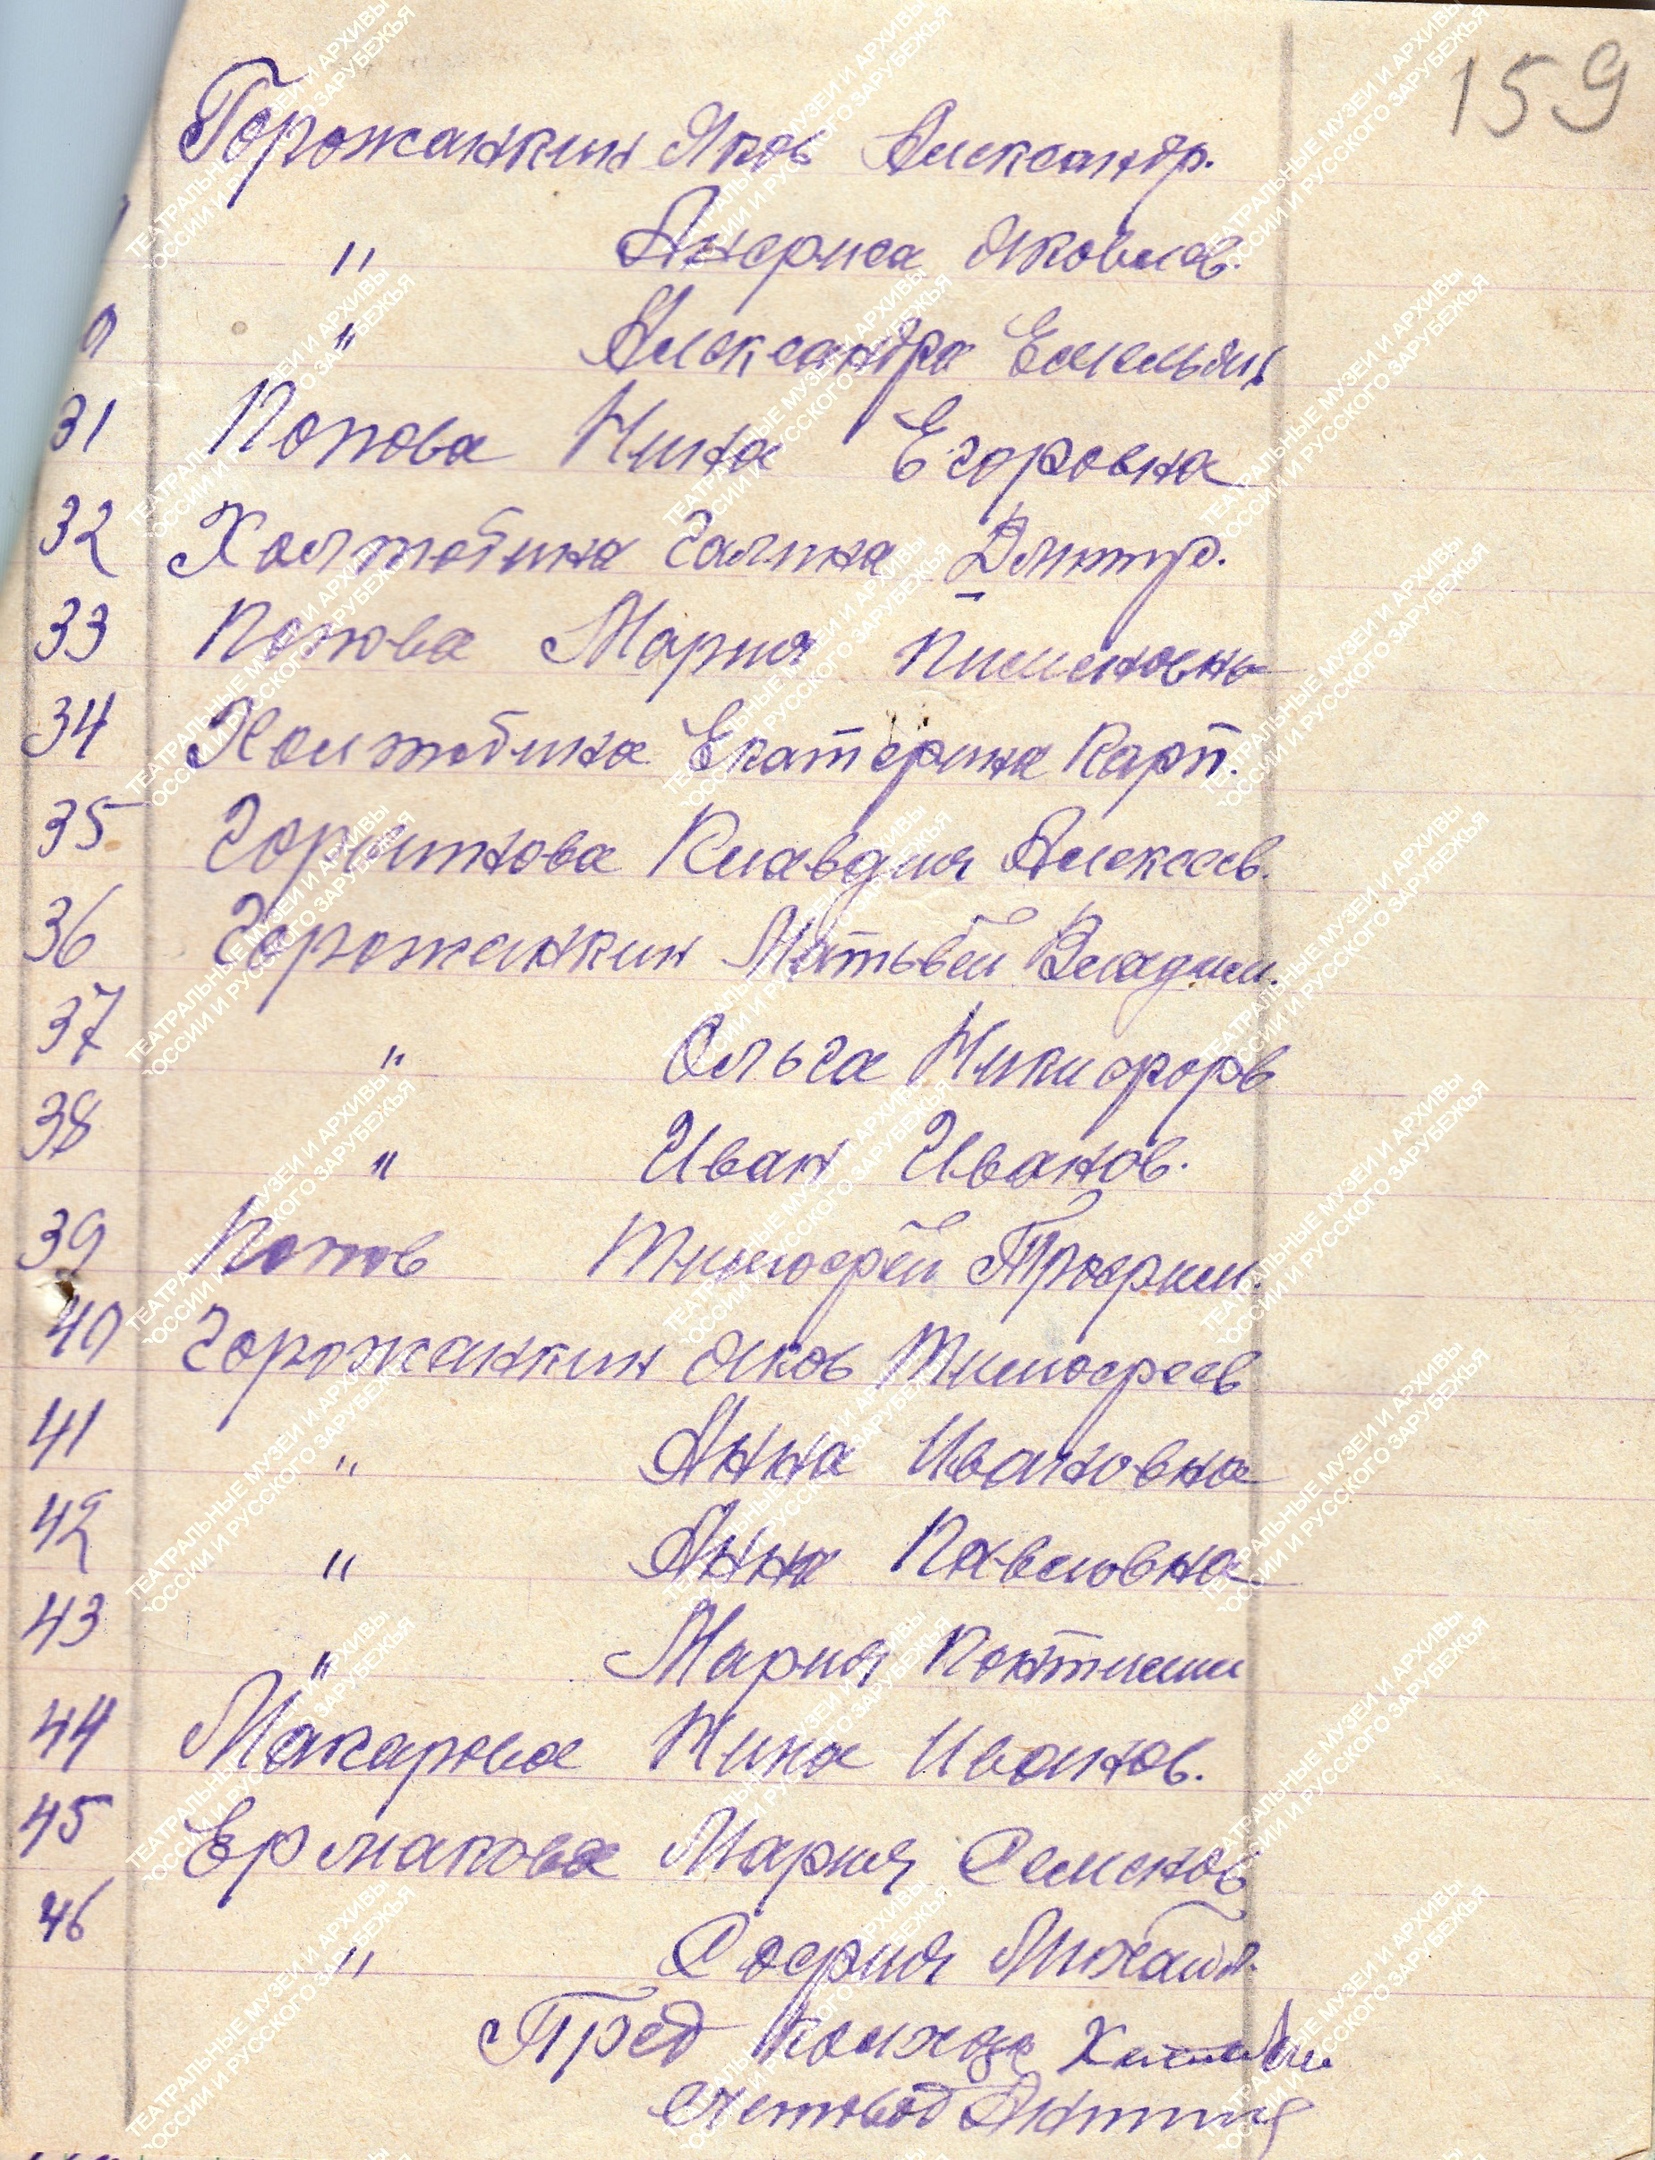 159
Горожанкин Яков Александр.
" Анфиса Яковлев.
" Александра Емельян.
31 Попова Нина Егоровна
32 Холтобина Галина Дмитр.
33 Попова Мария Пименовна
34 Холтобина Екатерина Карп.
35 Горшткова Клавдия Алексеев.
36 Горожанкин Матьвей Владим.
37 " Ольга Никифоров
38 " Иван Иванов.
39 Попов Тимофей Трофим.
40 Горожанкин Яков Тимофеев
41 " Анна Ивановна
42 " Анна Павловна
43 " Мария
44 Макарова Нина Иванов.
45 Ермакова Мария Семенов
46 " София Михайл.
Пред колхоза
Счетовод
ТЕАТРАЛЬНЫЕ МУЗЕИ И АРХИВЫ
РОССИИ И РУССКОГО ЗАРУБЕЖЬЯ